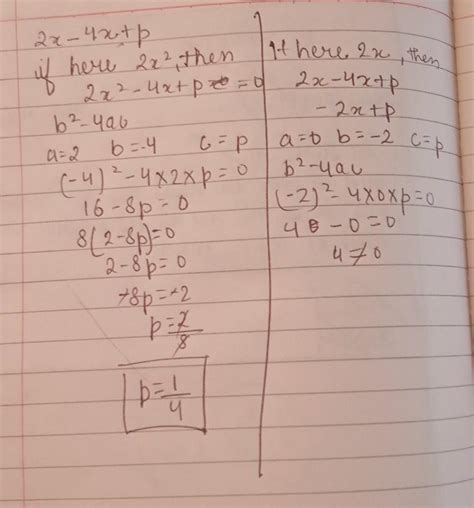 2x - 4x + p
if here 2x², then
2x² - 4x + p = 0
b² - 4ac
a=2 b=-4 c=p
(-4)² - 4×2×p = 0
16 - 8p = 0
8(2-8p)=0
2-8p=0
-8p=-2
p=2/8
p=1/4
If here 2x, then
2x-4x+p
-2x+p
a=0 b=-2 c=p
b²-4ac
(-2)²-4×0×p=0
4 - 0 = 0
4≠0